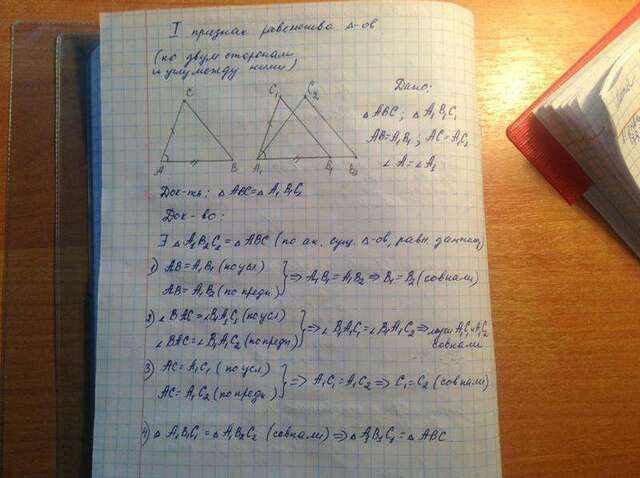 I признак равенства Δ-ов
(по двум сторонам
и углу между ними)
Дано:
C C₁ C₂
Δ ABC; Δ A₁B₁C₁
AB=A₁B₁; AC=A₁C₁
∠A=∠A₁
A B A₁ B₁ B₂
Док-ть: Δ ABC=Δ A₁B₁C₁
Док-во:
∃ Δ A₁B₂C₂=Δ ABC (по ак. сущ. Δ-ов, равн. данному)
1) AB=A₁B₁ (по усл)
AB=A₁B₂ (по предп) } ⇒ A₁B₁=A₁B₂ ⇒ B₁=B₂ (совпали)
2) ∠BAC=∠B₁A₁C₁ (по усл)
∠BAC=∠B₁A₁C₂ (по предп) } ⇒ ∠B₁A₁C₁=∠B₁A₁C₂ ⇒ лучи A₁C₁ и A₁C₂
совпали
3) AC=A₁C₁ (по усл)
AC=A₁C₂ (по предп) } ⇒ A₁C₁=A₁C₂ ⇒ C₁=C₂ (совпали)
4) Δ A₁B₁C₁=Δ A₁B₂C₂ (совпали) ⇒ Δ A₁B₁C₁=Δ ABC